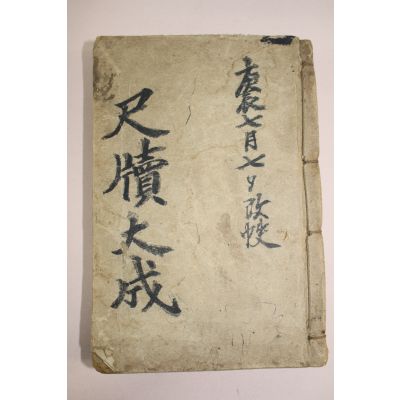 庚辰七月七夕改
尺牘大成